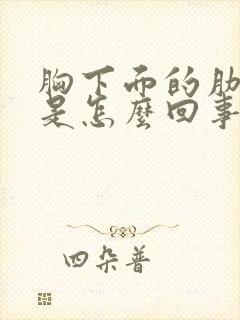 胸下面的肋
是怎麼回事
四朵普